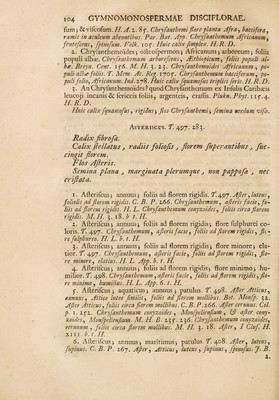 104 GYMNOMONOSPERMÆ DISCIFLORÆ.
sum, & viscosum. H. A. 2. 85. Chrysanthemi flore planta Afra, baccifera,
ramis in aculeum abeuntibus. Par. Bat. App. Chrysanthemum Africanum,
frutescens, spinosum. Volk. 105. Huic calix simplex. H. R. D.
2. Chrysanthemoides, osteospermon, Africanum, arboreum, foliis
populi albæ. Chrysanthemum arborescens, Æthiopicum, foliis populi al-
bæ. Breyn. Cent. 156. M. H. 3. 23. Chrysanthemoides Africanum, po-
puli albæ foliis. T. Mem. Ac. Reg. 1705. Chrysanthemum bacciferum, po-
puli folio, Africanum. Ind. 278. Huic calix squamosus triplici serie. H. R. D.
3. An Chrysanthemoides? quod Chrysanthemum ex Insulis Caribæis
leucoji incanis & sericeis foliis, argenteis, crassis. Plukn. Phyt. 115. 4.
H. R. D.
Huic calix squamosus, rigidus, flos Chrysanthemi, semina nondum visa.
ASTERICUS. T. 497. 283.
Radix fibrosa.
Calix stellatus, radiis foliosis, florem superantibus, suc-
cingit florem.
Flos Asteris.
Semina plana, marginata plerumque, non papposa, nec
cristata.
1. Asteriscus, annuus, foliis ad florem rigidis. T. 497. Aster, luteus,
foliolis ad florem rigidis. C. B. P. 266. Chrysanthemum, asteris facie, fo-
liis ad florem rigidis. H. L. Chrysanthemum conyzoides, foliis circa florem
rigidis. M. H. 3. 18. b 1. H.
2. Asteriscus, annuus, foliis ad florem rigidis, flore sulphurei co-
loris. T. 497. Chrysanthemum, asteris facie, foliis ad florem rigidis, flo-
re sulphureo. H. L. b. 1. H.
3. Asteriscus, annuus, foliis ad florem rigidis, flore minore, ela-
tior. T. 497. Chrysanthemum, asteris facie, foliis ad florem rigidis, flo-
re minore, elatius. H. L. App. b 1. H.
4. Asteriscus, annuus, foliis ad florem rigidis, flore minimo, hu-
milior. T. 498. Chrysanthemum, asteris facie, foliis ad florem rigidis, flo-
re minimo, humilius. H. L. App. 6. 1. H.
5. Asteriscus, aquaticus, annuus, patulus. T. 498. Aster Atticus,
annuus, Attico luteo similis, foliis ad florem mollibus. Bot. Monsp. 32.
Aster Atticus, foliis circa florem mollibus. C. B. P. 266. Aster cernuus. Col.
p. 1. 252. Chrysanthemum conyzoides, Monspeliensium, & aster cony-
zoides, Monspeliensium. M. H. B. 235. 236. Chrysanthemum conyzoides,
cernuum, foliis circa florem mollibus. M. H. 3. 18. Aster, I Clus. H.
XIII. b. 1. H.
6. Asteriscus, annuus, maritimus, patulus. T. 408. Aster, luteus,
supinus. C. B. P. 267. Aster, Atticus, luteus, supinus, spinosus. J. B.
2.